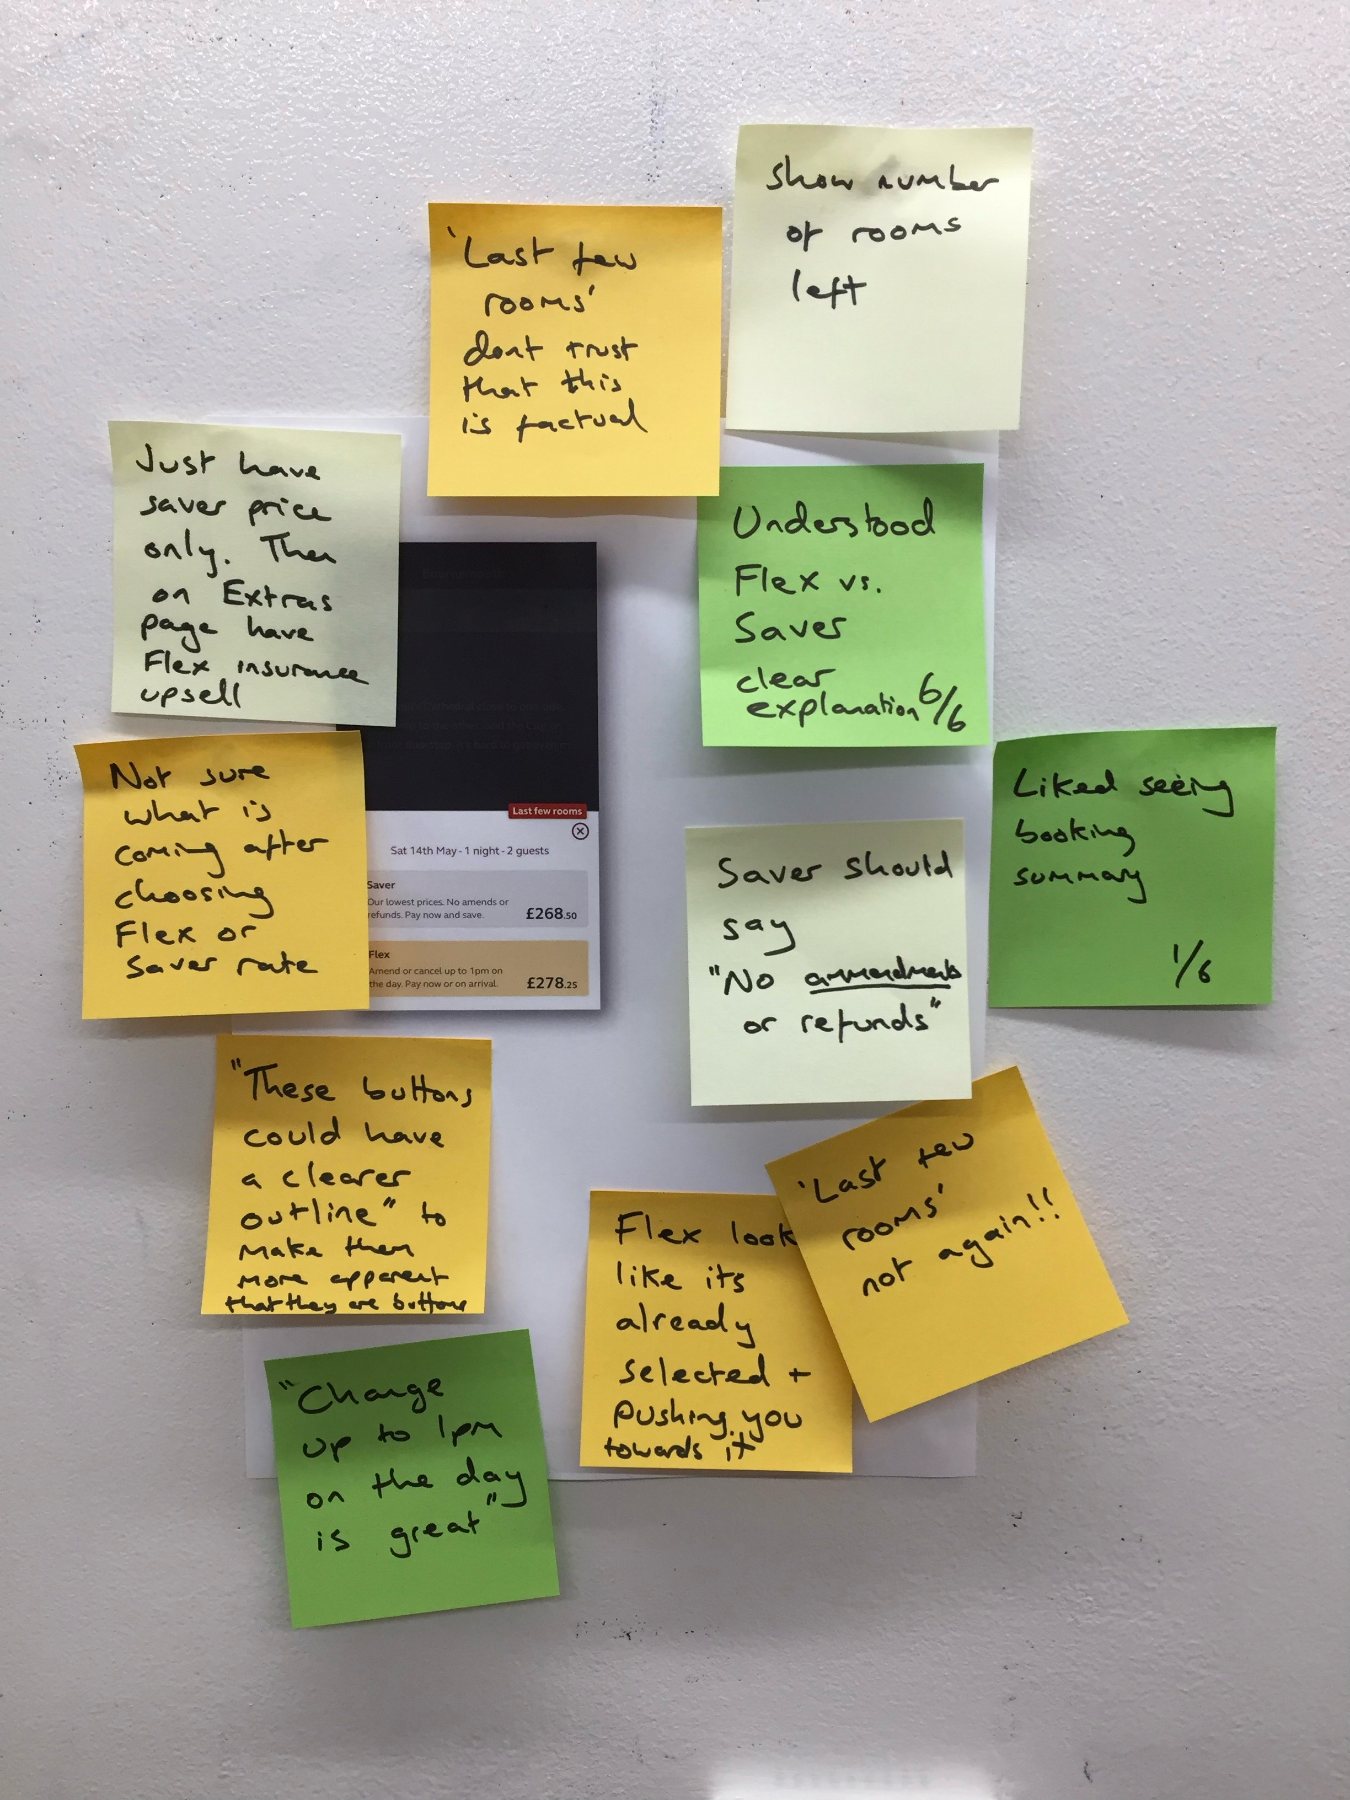 show number
of rooms
left
'Last few
rooms'
dont trust
that this
is factual
Just have
saver price
only. Then
on Extras
page have
Flex insurance
upsell
Understood
Flex vs.
Saver
clear
explanation 6/6
Not sure
what is
coming after
choosing
Flex or
Saver rate
Last few rooms
Sat 14th May - 1 night - 2 guests
Saver
Our lowest prices. No amends or
refunds. Pay now and save.
£268.50
Flex
Amend or cancel up to 1pm on
the day. Pay now or on arrival.
£278.25
Liked seeing
booking
summary
1/6
Saver should
say
"No ammendments
or refunds"
"These buttons
could have
a clearer
outline" to
make them
more apparent
that they are buttons
'Last few
rooms'
not again!!
Flex look
like its
already
selected +
pushing you
towards it
"Change
up to 1pm
on the day
is great"